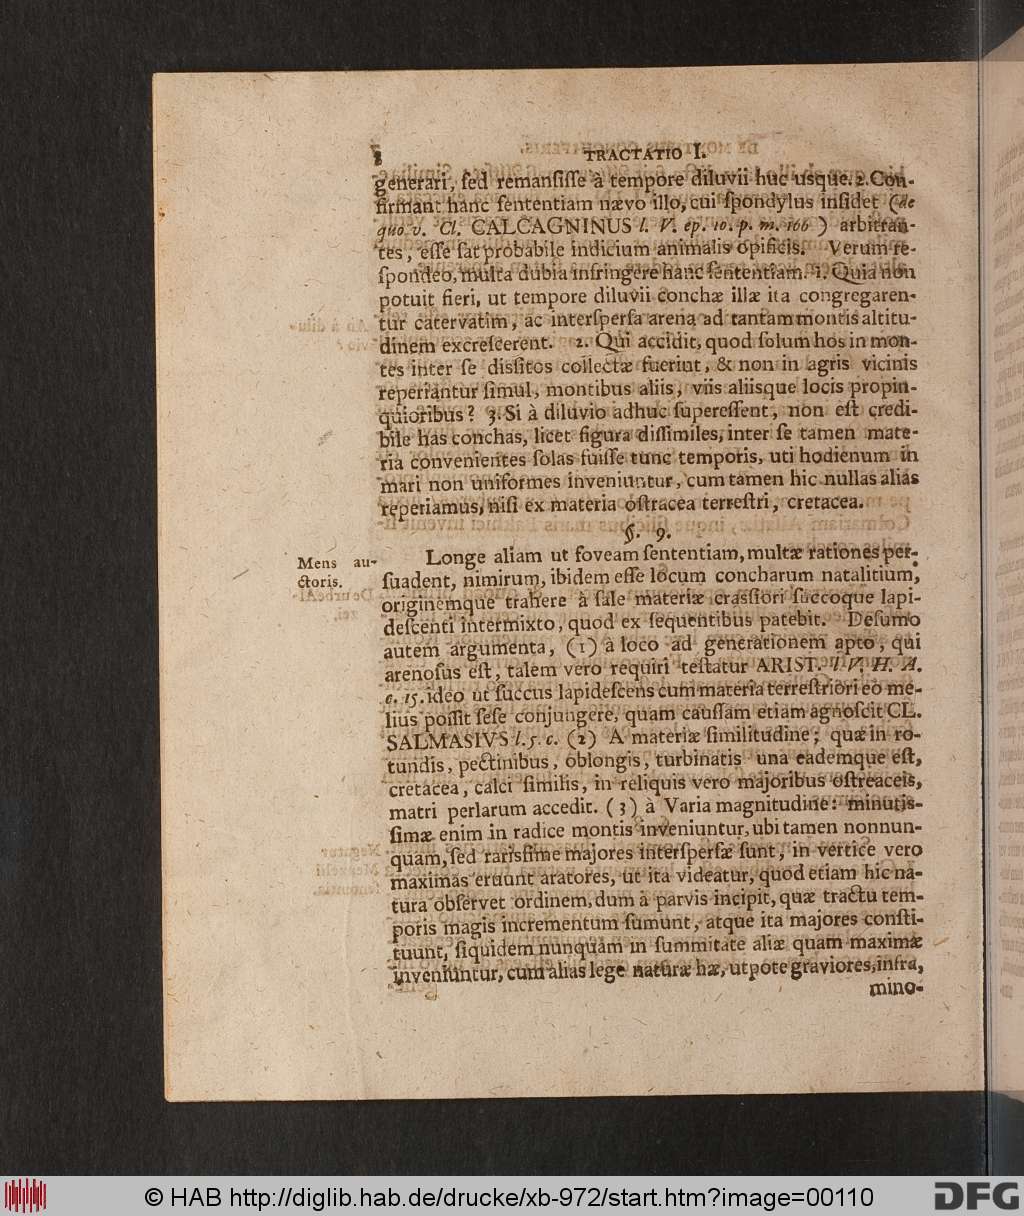 8 TRACTATIO I.
generari, ſed remanſiſſe à tempore diluvii huc usque. 2. Con-
firmant hanc ſententiam nævo illo, cui ſpondylus inſidet (de
quo v. Cl. CALCAGNINUS l. V. ep. 10. p. m. 166 ) arbitran-
tes, eſſe ſat probabile indicium animalis opificis. Verum re-
ſpondeo, multa dubia infringere hanc ſententiam. 1. Quia non
potuit fieri, ut tempore diluvii conchæ illæ ita congregaren-
tur catervatim, ac interſperſa arena ad tantam montis altitu-
dinem excreſcerent. 2. Qui accidit, quod ſolum hos in mon-
tes inter ſe disſitos collectæ fuerint, & non in agris vicinis
reperiantur ſimul, montibus aliis, viis aliisque locis propin-
quioribus? 3. Si à diluvio adhuc ſupereſſent, non eſt credi-
bile has conchas, licet figura diſſimiles, inter ſe tamen mate-
ria convenientes ſolas fuiſſe tunc temporis, uti hodienum in
mari non uniformes inveniuntur, cum tamen hic nullas alias
reperiamus, niſi ex materia oſtracea terreſtri, cretacea.
§. 9.
Mens au-
ctoris.
Longe aliam ut foveam ſententiam, multæ rationes per-
ſuadent, nimirum, ibidem eſſe locum concharum natalitium,
originemque trahere à ſale materiæ crasſiori ſuccoque lapi-
deſcenti intermixto, quod ex ſequentibus patebit. Deſumo
autem argumenta, (1) à loco ad generationem apto, qui
arenoſus eſt, talem vero requiri teſtatur ARIST. l. V. H. A.
c. 15. ideo ut ſuccus lapideſcens cum materia terreſtriori eo me-
lius poſſit ſeſe conjungere, quam cauſſam etiam agnoſcit CL.
SALMASIVS l. 5. c. (2) A materiæ ſimilitudine; quæ in ro-
tundis, pectinibus, oblongis, turbinatis una eademque eſt,
cretacea, calci ſimilis, in reliquis vero majoribus oſtreaceis,
matri perlarum accedit. (3) à Varia magnitudine: minutis-
ſimæ enim in radice montis inveniuntur, ubi tamen nonnun-
quam, ſed rarisſime majores interſperſæ ſunt, in vertice vero
maximas eruunt aratores, ut ita videatur, quod etiam hic na-
tura obſervet ordinem, dum à parvis incipit, quæ tractu tem-
poris magis incrementum ſumunt, atque ita majores conſti-
tuunt, ſiquidem nunquam in ſummitate aliæ quam maximæ
inveniuntur, cum alias lege naturæ hæ, utpote graviores, infra,
mino-
© HAB http://diglib.hab.de/drucke/xb-972/start.htm?image=00110
DFG